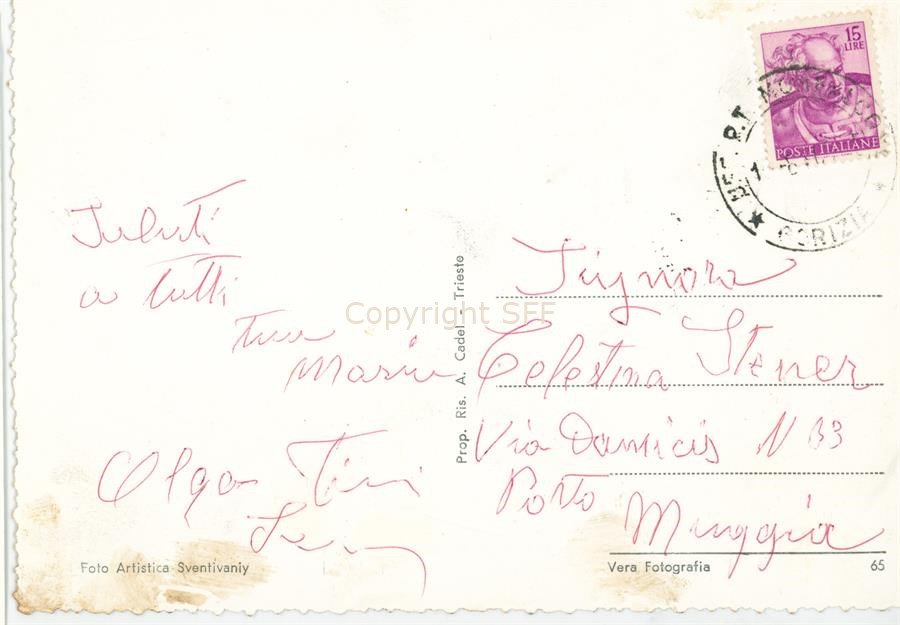 Saluti
a tutti
tua
Maria
Olga Tini
Signora
Celestina Stener
Via Damicis N 33
Porto
Muggia
Prop. Ris. A. Cadel - Trieste
Foto Artistica Sventivaniy
Vera Fotografia 65
15
LIRE
POSTE ITALIANE
GORIZIA
Copyright SFF